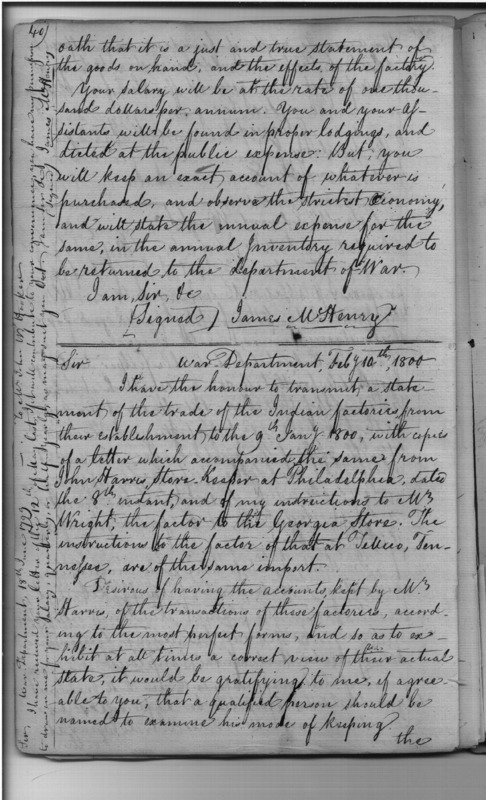 40)
oath that it is a just and true statement of
the goods on hand, and the effects of the factory.
Your salary will be at the rate of one thou-
sand dollars per annum. You and your As-
sistants will be found in proper lodgings, and
dieted at the public expense: But, you
will keep an exact account of whatever is
purchased, and observe the strictest Economy,
and will state the annual expense for the
same, in the annual Inventory required to
be returned to the department of War.
I am, Sir, &c
(Signed) James McHenry
Sir War Department, Feby 10th, 1800
I have the honour to transmit a state-
ment of the trade of the Indian factories from
their establishment to the 9th Jany 1800, with copies
of a letter which accompanied the same from
John Harris, Store Keeper at Philadelphia, dated
the 8th instant, and of my instructions to Mr
Wright, the factor to the Georgia Store. The
instructions to the factor of that at Tellico, Ten-
nessee, are of the same import.
Desirous of having the accounts kept by Mr
Harris, of the transactions of these factories, accord-
ing to the most perfect forms, and so as to ex-
hibit at all times a correct view of their actual
state, it would be gratifying to me, if agree-
able to you, that a qualified person should be
named to examine his mode of keeping
the
War Department, 18th June 1799
Sir, I have received your letter of the 12th of
James McHenry
(Signed)